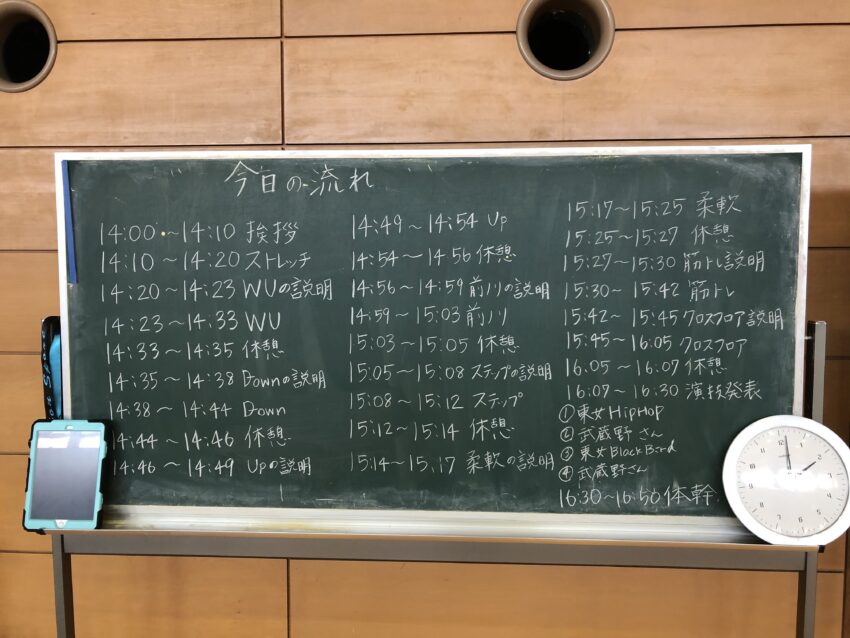 今日の流れ
14:00~14:10 挨拶
14:10~14:20 ストレッチ
14:20~14:23 WUの説明
14:23~14:33 WU
14:33~14:35 休憩
14:35~14:38 Downの説明
14:38~14:44 Down
14:44~14:46 休憩
14:46~14:49 Upの説明
14:49~14:54 Up
14:54~14:56 休憩
14:56~14:59 前ノリの説明
14:59~15:03 前ノリ
15:03~15:05 休憩
15:05~15:08 ステップの説明
15:08~15:12 ステップ
15:12~15:14 休憩
15:14~15:17 柔軟の説明
15:17~15:25 柔軟
15:25~15:27 休憩
15:27~15:30 筋トレ説明
15:30~15:42 筋トレ
15:42~15:45 クロスフロア説明
15:45~16:05 クロスフロア
16:05~16:07 休憩
16:07~16:30 演技発表
①東女HipHop
②武蔵野さん
③東女BlackBird
④武蔵野さん
16:30~16:50 体幹
12
1
2
3
4
5
6
7
8
9
10
11